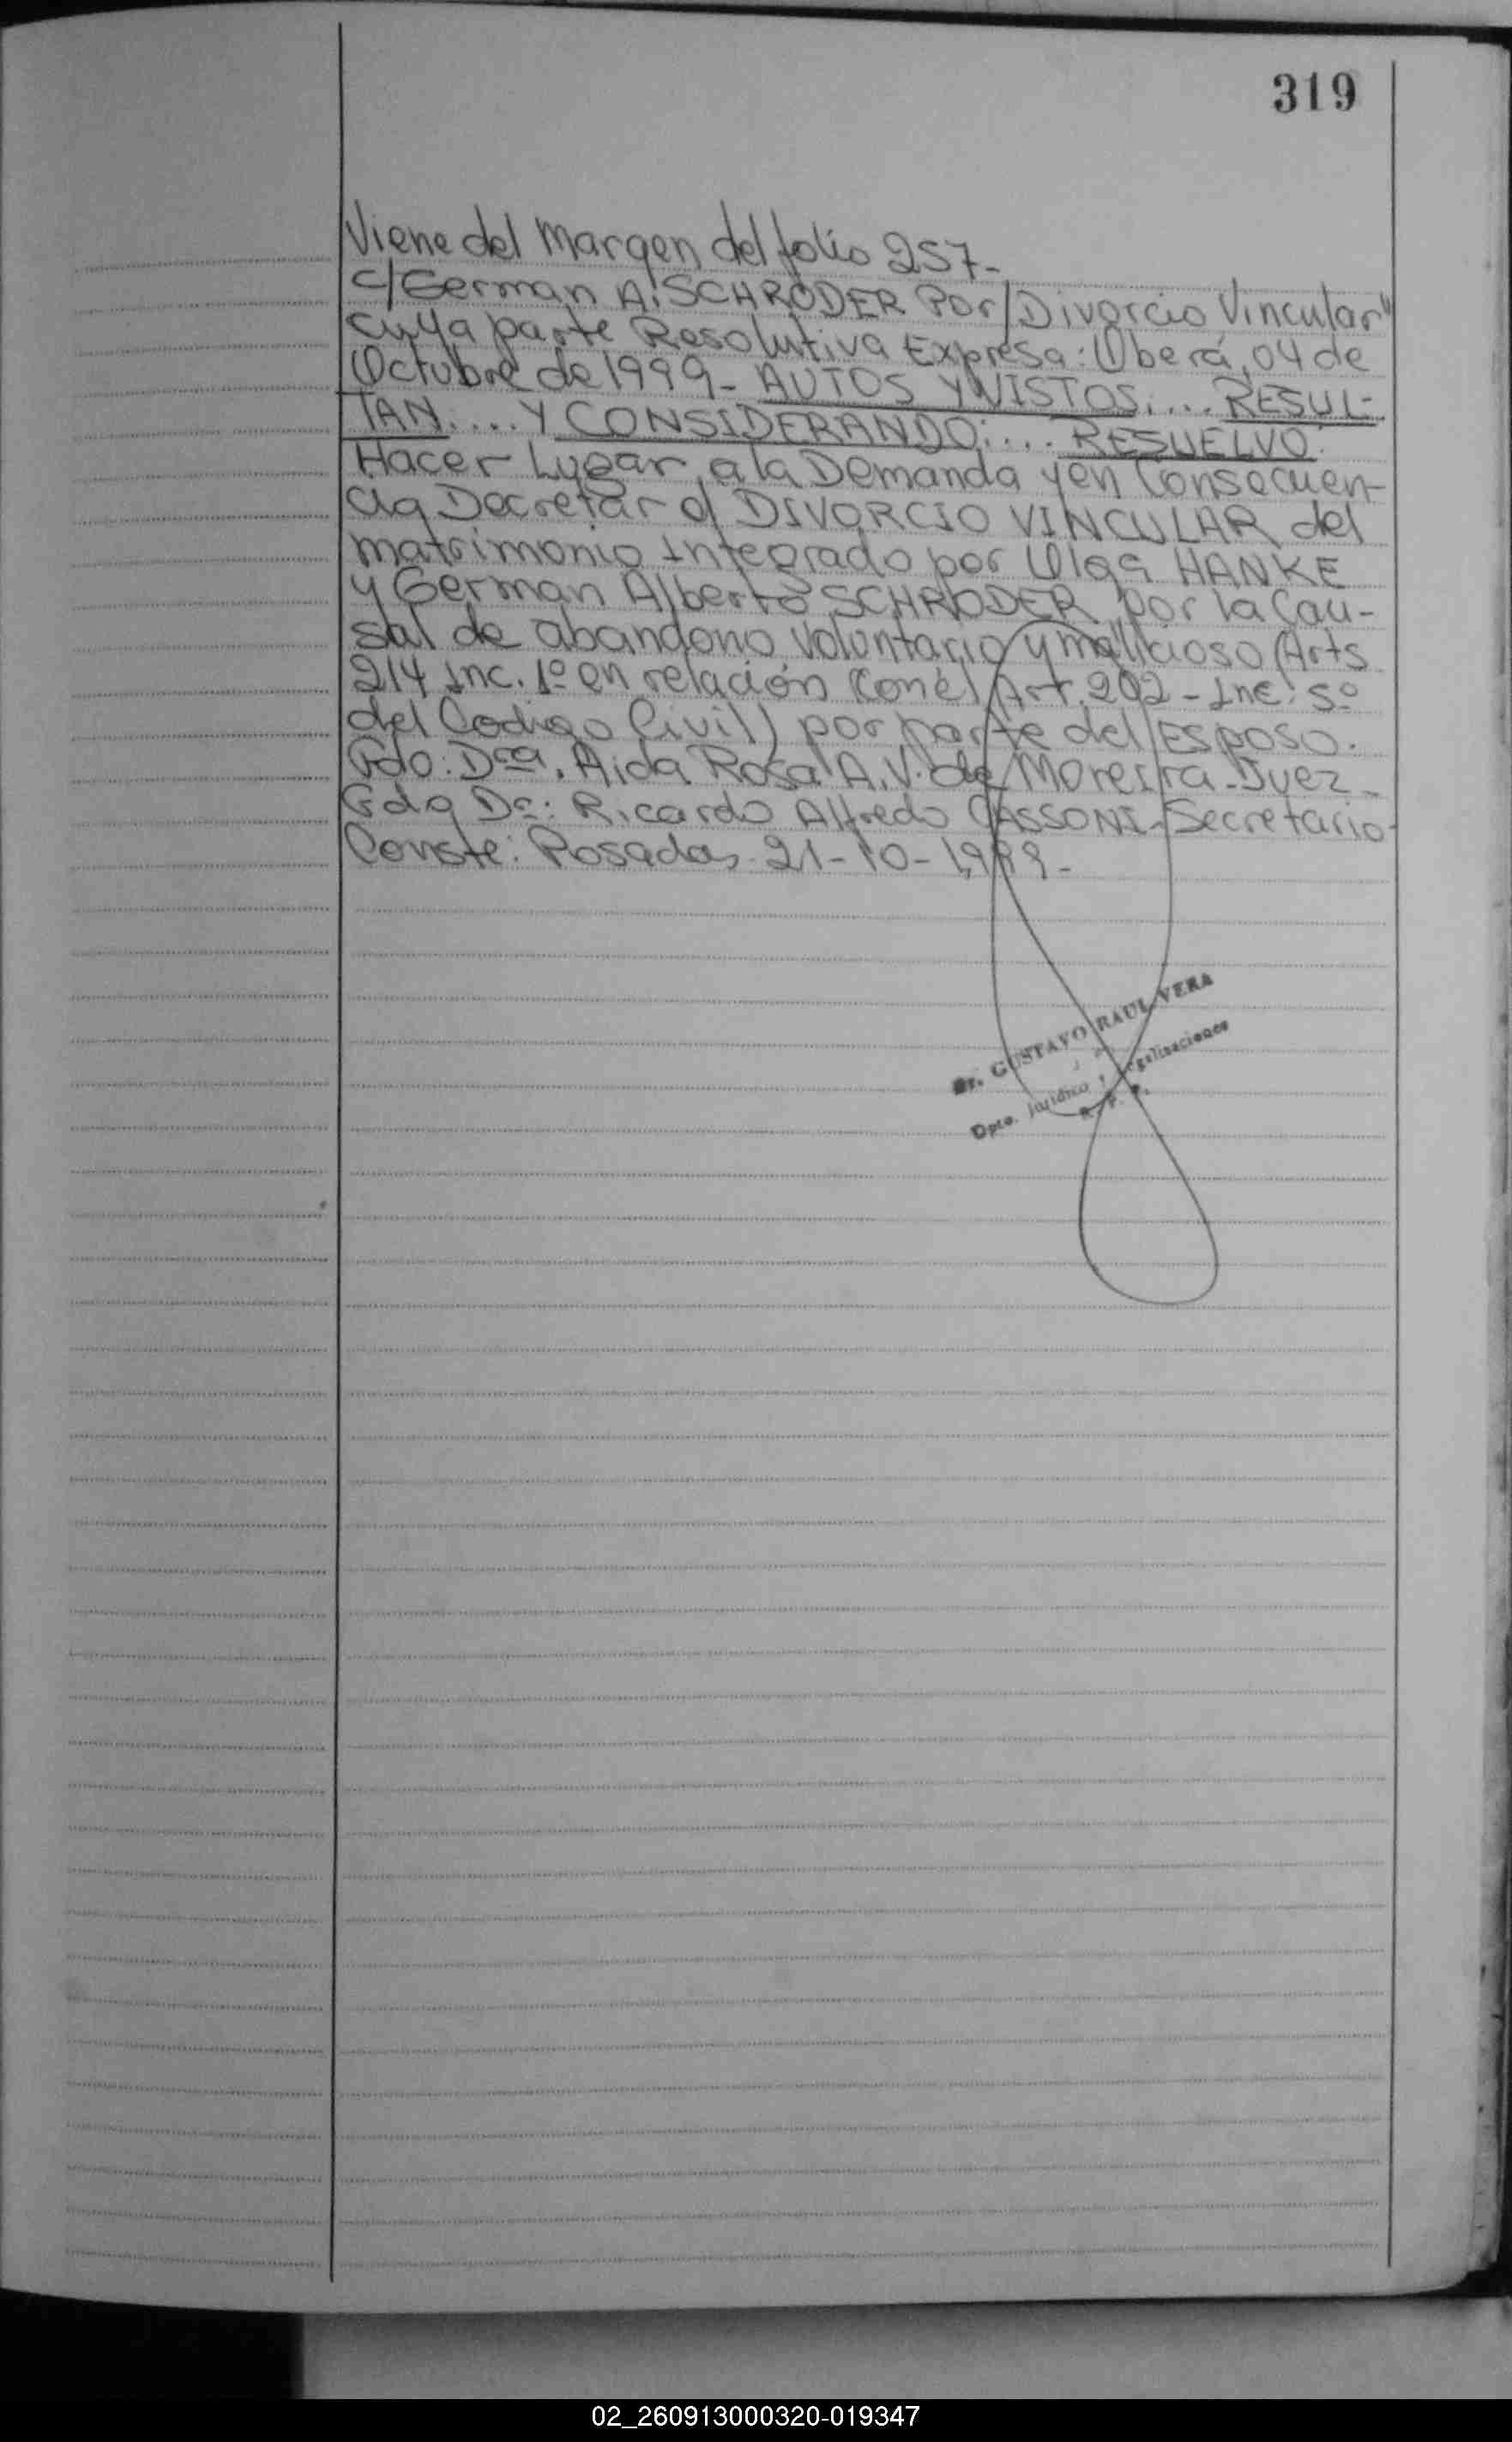 319
Viene del Margen del folio 257-
c/German A. SCHRÖDER Por/Divorcio Vincular"
cuya parte Resolutiva Expresa: Oberá, 04 de
Octubre de 1999- AUTOS Y VISTOS.... RESUL-
TAN.... Y CONSIDERANDO:.... RESUELVO:
Hacer Lugar a la Demanda y en Consecuen-
cia Decretar el DIVORCIO VINCULAR del
matrimonio Integrado por Olga HANKE
y German Alberto SCHRODER por la Cau-
sal de abandono voluntario y malicioso (Arts
214 Inc. 1º en relación con el Art. 202- Inc. 5º
del Codigo Civil) por parte del Esposo.
Fdo: Dra. Aida Rosa A. V. de Moreira-Juez-
Fdo Dr: Ricardo Alfredo CASSONI-Secretario-
Conste: Posadas 21-10-1,999-
Dr. GUSTAVO RAUL VERA
Dpto. Jurídico y Legalizaciones
R. P. P.
02_260913000320-019347